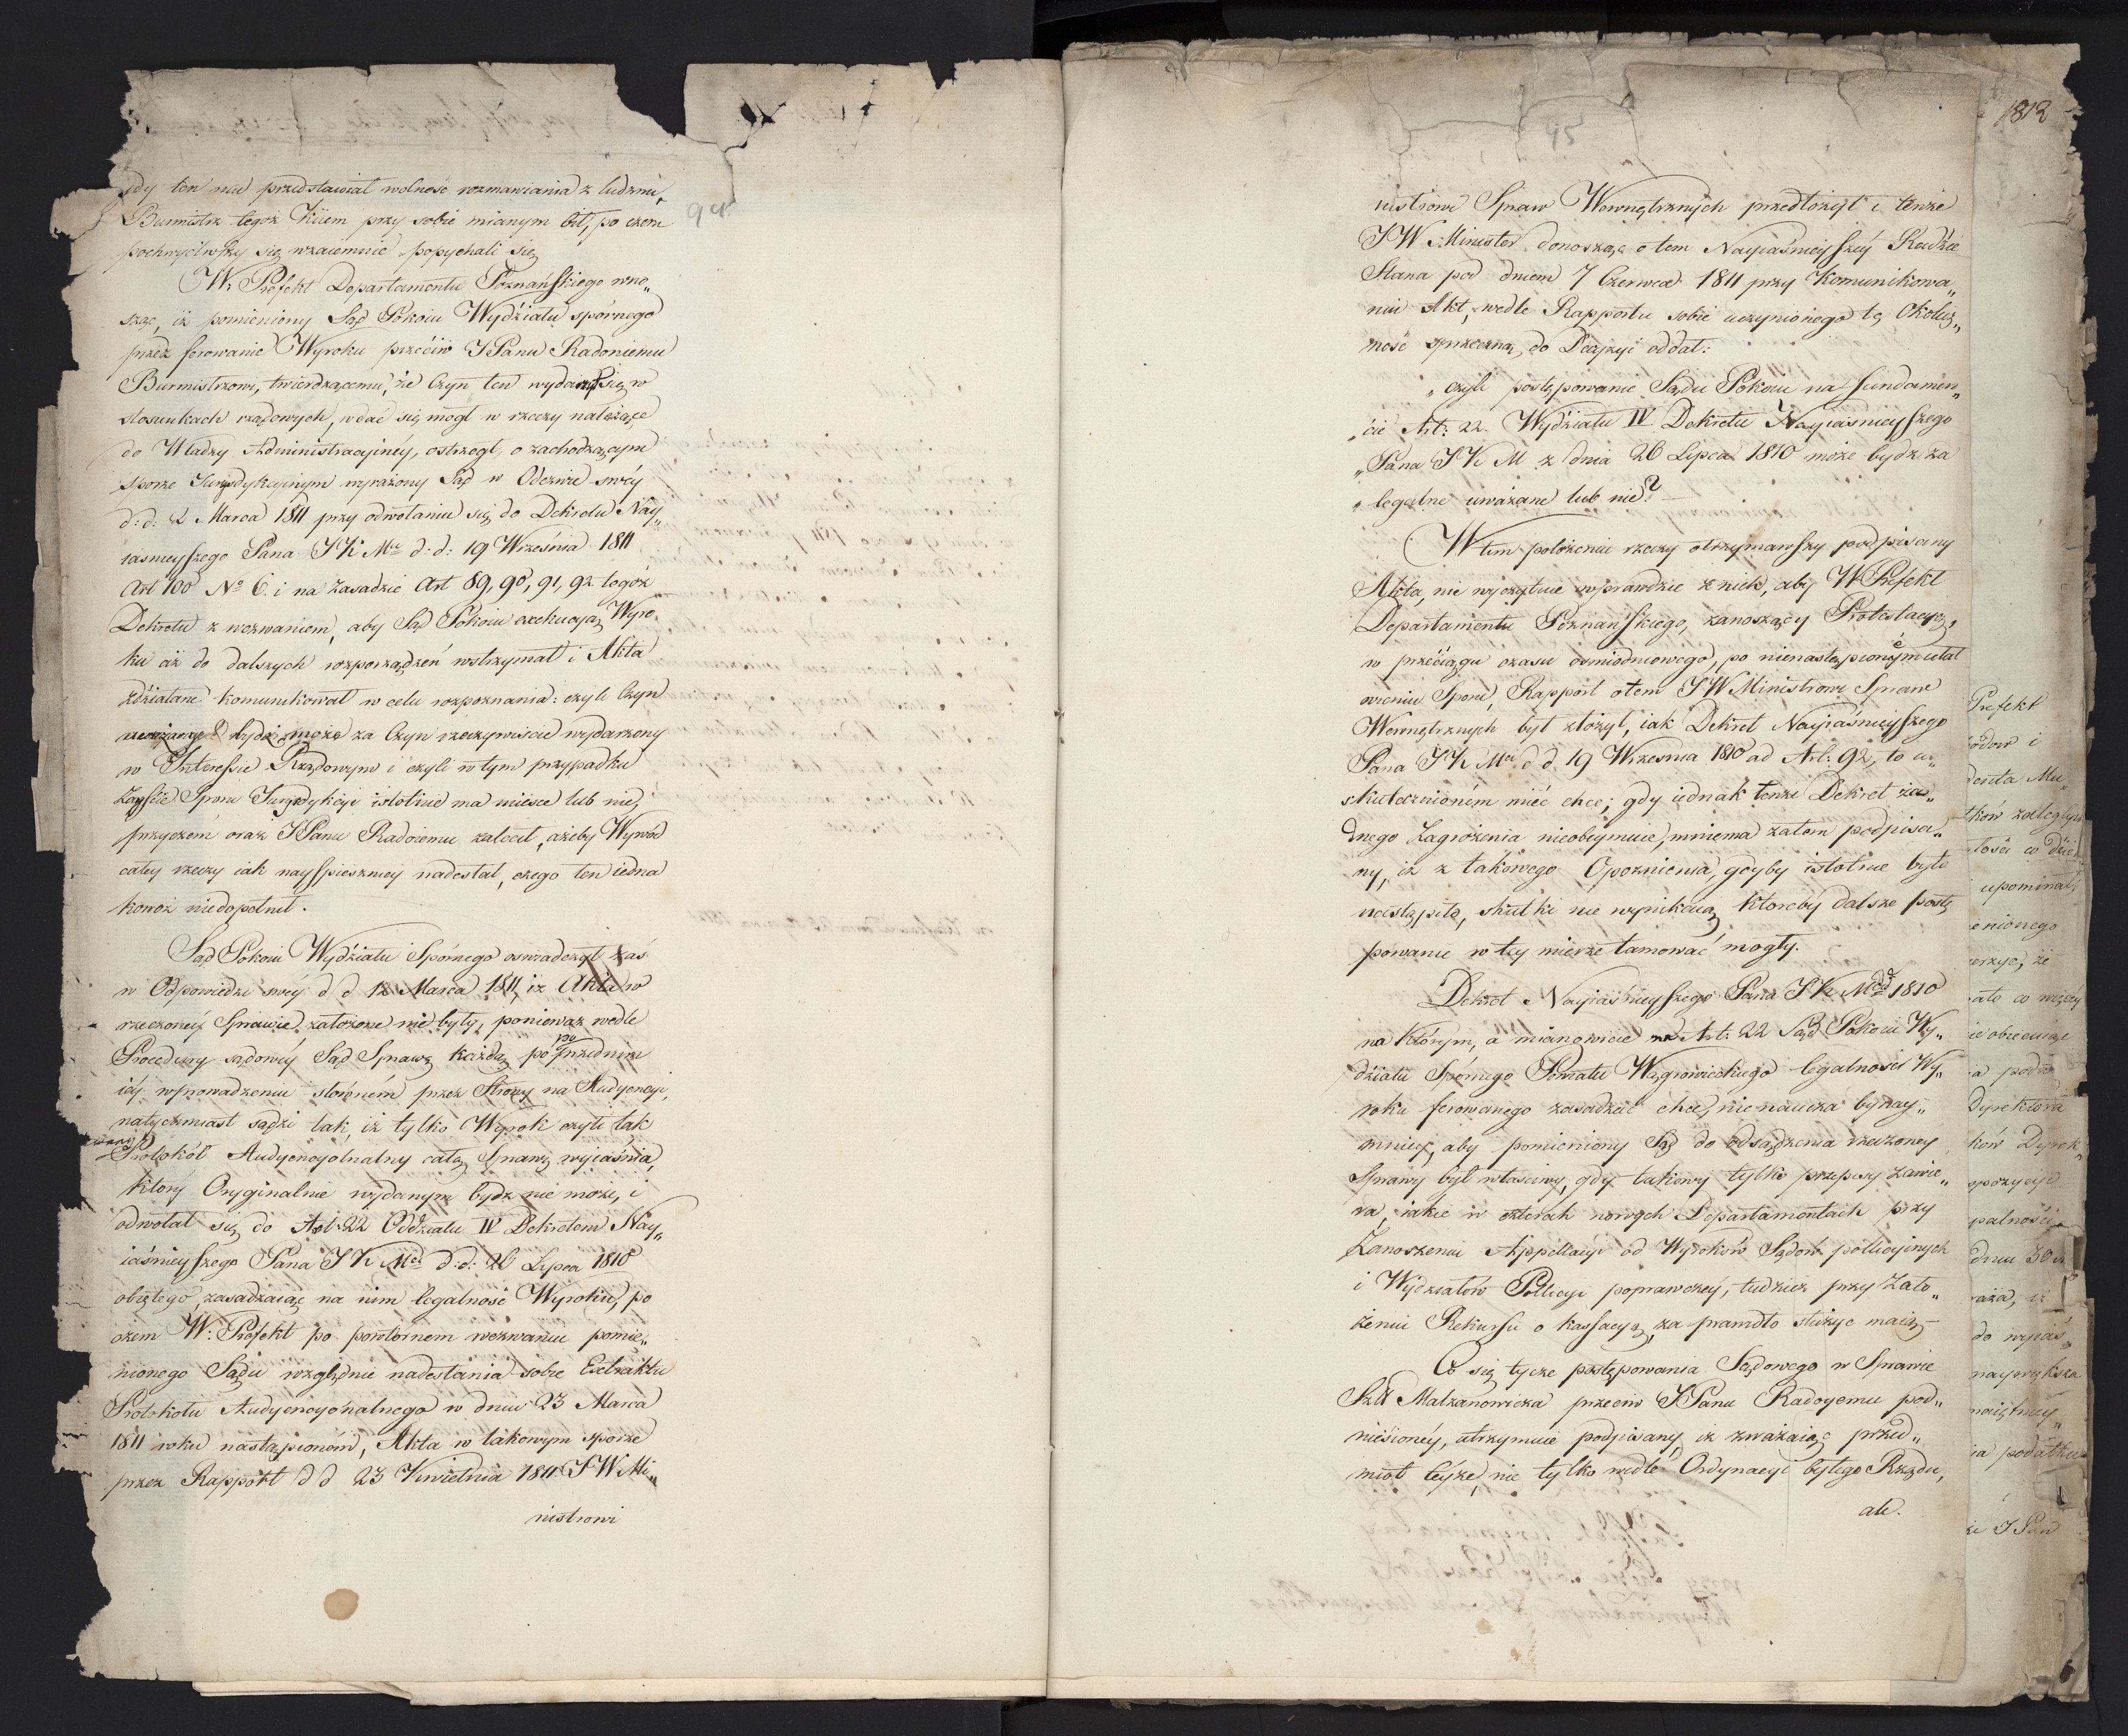 gdy ten mu przedstawiał wolność rozmawiania z ludzmi,
Burmistrz tegoż Kiiem przy sobie mianym bił, po czem
pochwyciwszy się wzaiemnie popychali się
W: Prefekt Departamentu Poznańskiego wno„
sząc, iż pomieniony Sąd Pokoiu Wydziału spornego
przez ferowanie Wyroku przeciw JPanu Radoniemu
Burmistrzowi, twierdzącemu, że Czyn ten wydarzył się w
stosunkach rządowych, wdać się mógł w rzeczy należące
do Władzy Administracyiney, ostrzegł, o zachodzącym
sporze Juryzdykcyinym wyrażony Sąd w Odezwie swéy
d: d: 2 Marca 1811 przy odwołaniu się do Dekretu Nay„
iasnieyszego Pana JK Mci d: d: 19 Września 1811
Art 100 No 6. i na zasadzie Art 89, 90, 91, 92. tegoż
Dekretu z wezwaniem, aby Sąd Pokoiu exekucyą Wyro„
ku aż do dalszych rozporządzeń wstrzymał i Akta
zdziałane kommunikował w celu rozpoznania: czyli Czyn
bydź może za Czyn rzeczywiście wydarzony
w Interessie Rządowym i czyli w tym przypadku
Zayście Sporu Juryzdykcyi istotnie ma mieysce lub nie,
przyczem oraz JPanu Radoiemu zalecił, ażeby Wywód
całey rzeczy iak nayspieszniey nadesłał, czego ten iedna
kowoż niedopełnił.
Sąd Pokoiu Wydziału Spornego oswiadczył zaś
w Odpowiedzi swéy d d 12 Marca 1811, iż Akta w
rzeczonéy Sprawie założone nie były, poniewaz wedle
Procedury sądowéy Sąd Sprawę każdą po poprzednim
iéy wprowadzeniu słownem przez Strony na Audyencyi,
natychmiast sądzi tak, iż tylko Wyrok czyli tak
zwany
Protokół Audyencyonalny całą Sprawę wyiaśnia,
ktory Oryginalnie wydanym bydz nie może, i
odwołał się do Art: 22 Oddziału IV Dekretem Nay„
iaśnieyszego Pana JK Mci d: d: 26 Lipca 1810
obiętego, zasadzaiąc na nim legalność Wyroku, po
czem W: Prefekt po powtornem wezwaniu pomie„
nionego Sądu względnie nadesłania sobie Extraktu
Protokołu Audyencyonalnego w dniu 23 Marca
1811 roku nastąpionem, Akta w takowym sporze
przez Rapport d d 23 Kwietnia 1811 JW Mi„
nistrowi
94
95
nistrowi Spraw Wewnętrznych przedłożył i tenże
JW Minister donosząc o tem Nayiaśnieyszéy Radzie
Stana pod dniem 7 Czerwca 1811 przy Komunikowa„
niu Akt, wedle Rapportu sobie uczynionego tę Okolicz„
ność sprzeczną, do Decyzyi oddał:
„czyli postępowanie Sądu Pokoiu na fundamen„
„cie Art: 22. Wydziału IV Dekretu Nayiaśnieyszego
„Pana JK M z dnia 26 Lipca 1810 może bydz za
„legalne uważane lub nie?
W tem położeniu rzeczy otrzymawszy podpisany
Akta, nie wyczytuie wprawdzie z nich, aby W Prefekt
Departamentu Poznańskiego, zanoszący Protestacyą,
w przeciągu czasu osmiodniowego, po nienastąpioném ułat
wieniu Sporu, Rapport o tem JW Ministrowi Spraw
Wewnętrznych był złożył, iak Dekret Nayiaśnieyszego
Pana JK Mci d d 19 Wrzesnia 1810 ad Art: 92, to u„
skutecznioném mieć chce; gdy iednak tenże Dekret ża„
dnego Zagrożenia nieobeymuie, mniema zatem podpisa„
ny, iż z takowego Opoznienia, gdyby istotnie było
nastąpiło, skutki nie wynikaią, ktoreby dalsze postę
powanie w tey mierze tamować mogły.
Dekret Nayiaśnieyszego Pana JK Mci dd 1810
na którym, a mianowicie na Art: 22 Sąd Pokoiu Wy„
działu Spornego Powiatu Wągrowieckiego legalność Wy„
roku ferowanego zasadzać chce, nienaucza bynay„
mniey, aby pomieniony Sąd do odsądzenia rzeczoney
Sprawy był właściwy, gdy takowy tylko przepisy zawie„
ra, iakie w czterech nowych Departamentach przy
Zanoszeniu Appellacyi od Wyroków Sądow policyinych
i Wydziałów Policyi poprawczéy, tudzież przy Zało„
żeniu Rekursu o kassacyą, za prawidło służyc maią
Co się tycze postępowania Sądowego w Sprawie
Malzanowicza przeciw JPanu Radoyemu pod„
niesionéy, utrzymuie podpisany, iż zważaiąc przed„
miot téyże, nie tylko wedle Ordynacyi byłego Rządu,
ale.
1812
Prefekt
odow i
denta Mu„
tkow zaległych
upominał
enionego
erzyc, że
ato co więcéy
ie obiecuiąc
a poda
Dyrektora
kow Dyrek„
palności
dniu 30
aża, iż
do wyiaś„
naywyksza
ia podatku
że JPan